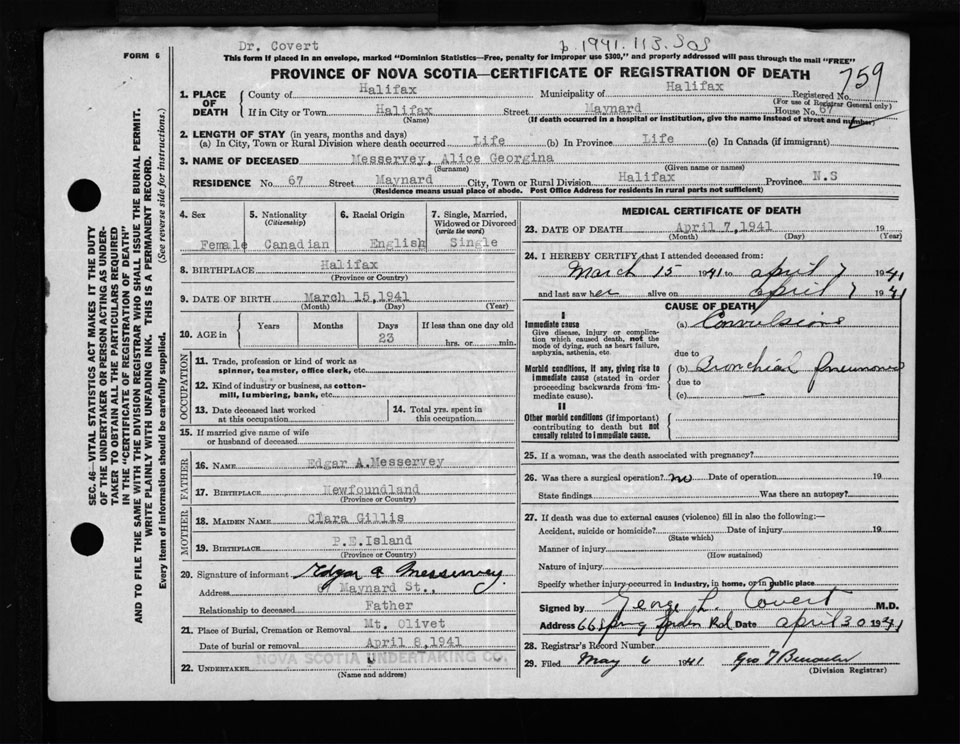 Dr. Covert
p. 1941. 113. 505
FORM 6
This form if placed in an envelope, marked "Dominion Statistics—Free, penalty for improper use $300," and property addressed will pass through the mail "FREE"
PROVINCE OF NOVA SCOTIA—CERTIFICATE OF REGISTRATION OF DEATH
759
1. PLACE OF DEATH
County of Halifax Municipality of Halifax Registered No.
(For use of Registrar General only)
If in City or Town Halifax Street Maynard House No. 67
(Name) (If death occurred in a hospital or institution, give the name instead of street and number)
2. LENGTH OF STAY (in years, months and days)
(a) In City, Town or Rural Division where death occurred Life (b) In Province Life (c) In Canada (if immigrant)
3. NAME OF DECEASED Messervey, Alice Georgina
(Surname) (Given name or names)
RESIDENCE No. 67 Street Maynard City, Town or Rural Division Halifax Province N.S
(Residence means usual place of abode. Post Office Address for residents in rural parts not sufficient)
4. Sex 5. Nationality (Citizenship) 6. Racial Origin 7. Single, Married, Widowed or Divorced (write the word)
Female Canadian English Single
8. BIRTHPLACE Halifax
(Province or Country)
9. DATE OF BIRTH March 15,1941
(Month) (Day) (Year)
10. AGE in Years Months Days If less than one day old
23 hrs. or min.
OCCUPATION
11. Trade, profession or kind of work as spinner, teamster, office clerk, etc.
12. Kind of industry or business, as cotton-mill, lumbering, bank, etc.
13. Date deceased last worked at this occupation
14. Total yrs. spent in this occupation
15. If married give name of wife or husband of deceased
FATHER
16. NAME Edgar A.Messervey
17. BIRTHPLACE Newfoundland
(Province or Country)
MOTHER
18. MAIDEN NAME Clara Gillis
19. BIRTHPLACE P.E.Island
(Province or Country)
20. Signature of informant Edgar A Messervey.
Address 67 Maynard St.,
Relationship to deceased Father
21. Place of Burial, Cremation or Removal Mt. Olivet
Date of burial or removal April 8,1941
22. UNDERTAKER NOVA SCOTIA UNDERTAKING CO.
(Name and address)
MEDICAL CERTIFICATE OF DEATH
23. DATE OF DEATH April 7,1941 19
(Month) (Day) (Year)
24. I HEREBY CERTIFY that I attended deceased from:
March 15 1941 to April 7 1941
and last saw her alive on April 7 1941
CAUSE OF DEATH
I
Immediate cause
Give disease, injury or complication which caused death, not the mode of dying, such as heart failure, asphyxia, asthenia, etc.
(a) Convulsions
due to
Morbid conditions, if any, giving rise to immediate cause (stated in order proceeding backwards from immediate cause).
(b) Bronchial pneumonia
due to
(c)
II
Other morbid conditions (if important) contributing to death but not causally related to immediate cause.
25. If a woman, was the death associated with pregnancy?
26. Was there a surgical operation? no Date of operation 19
State findings Was there an autopsy?
27. If death was due to external causes (violence) fill in also the following:—
Accident, suicide or homicide? Date of injury 19
(State which)
Manner of injury
(How sustained)
Nature of injury
Specify whether injury occurred in industry, in home, or in public place
Signed by George L. Covert M.D.
Address 66 Spring Garden Rd Date April 30 1941
28. Registrar's Record Number
29. Filed May 6 1941 Geo
(Division Registrar)
SEC. 46—VITAL STATISTICS ACT MAKES IT THE DUTY
OF THE UNDERTAKER OR PERSON ACTING AS UNDER-
TAKER TO OBTAIN ALL THE PARTICULARS REQUIRED
IN THE "CERTIFICATE OF REGISTRATION OF DEATH"
AND TO FILE THE SAME WITH THE DIVISION REGISTRAR WHO SHALL ISSUE THE BURIAL PERMIT.
WRITE PLAINLY WITH UNFADING INK. THIS IS A PERMANENT RECORD.
Every item of information should be carefully supplied. (See reverse side for instructions.)